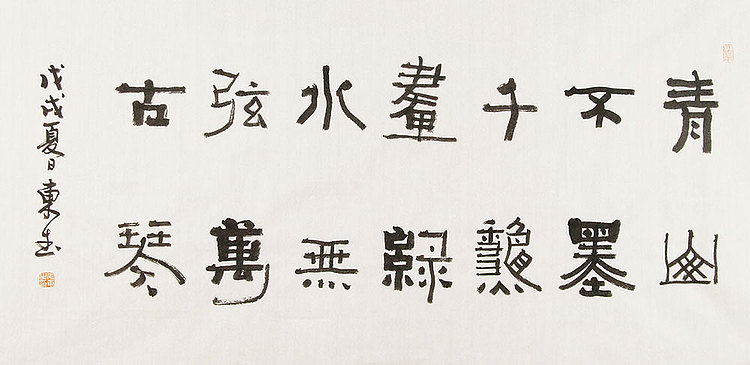 青山
不墨
千秋
畫綠
水無
弦萬
古琴
戊戌夏日東书